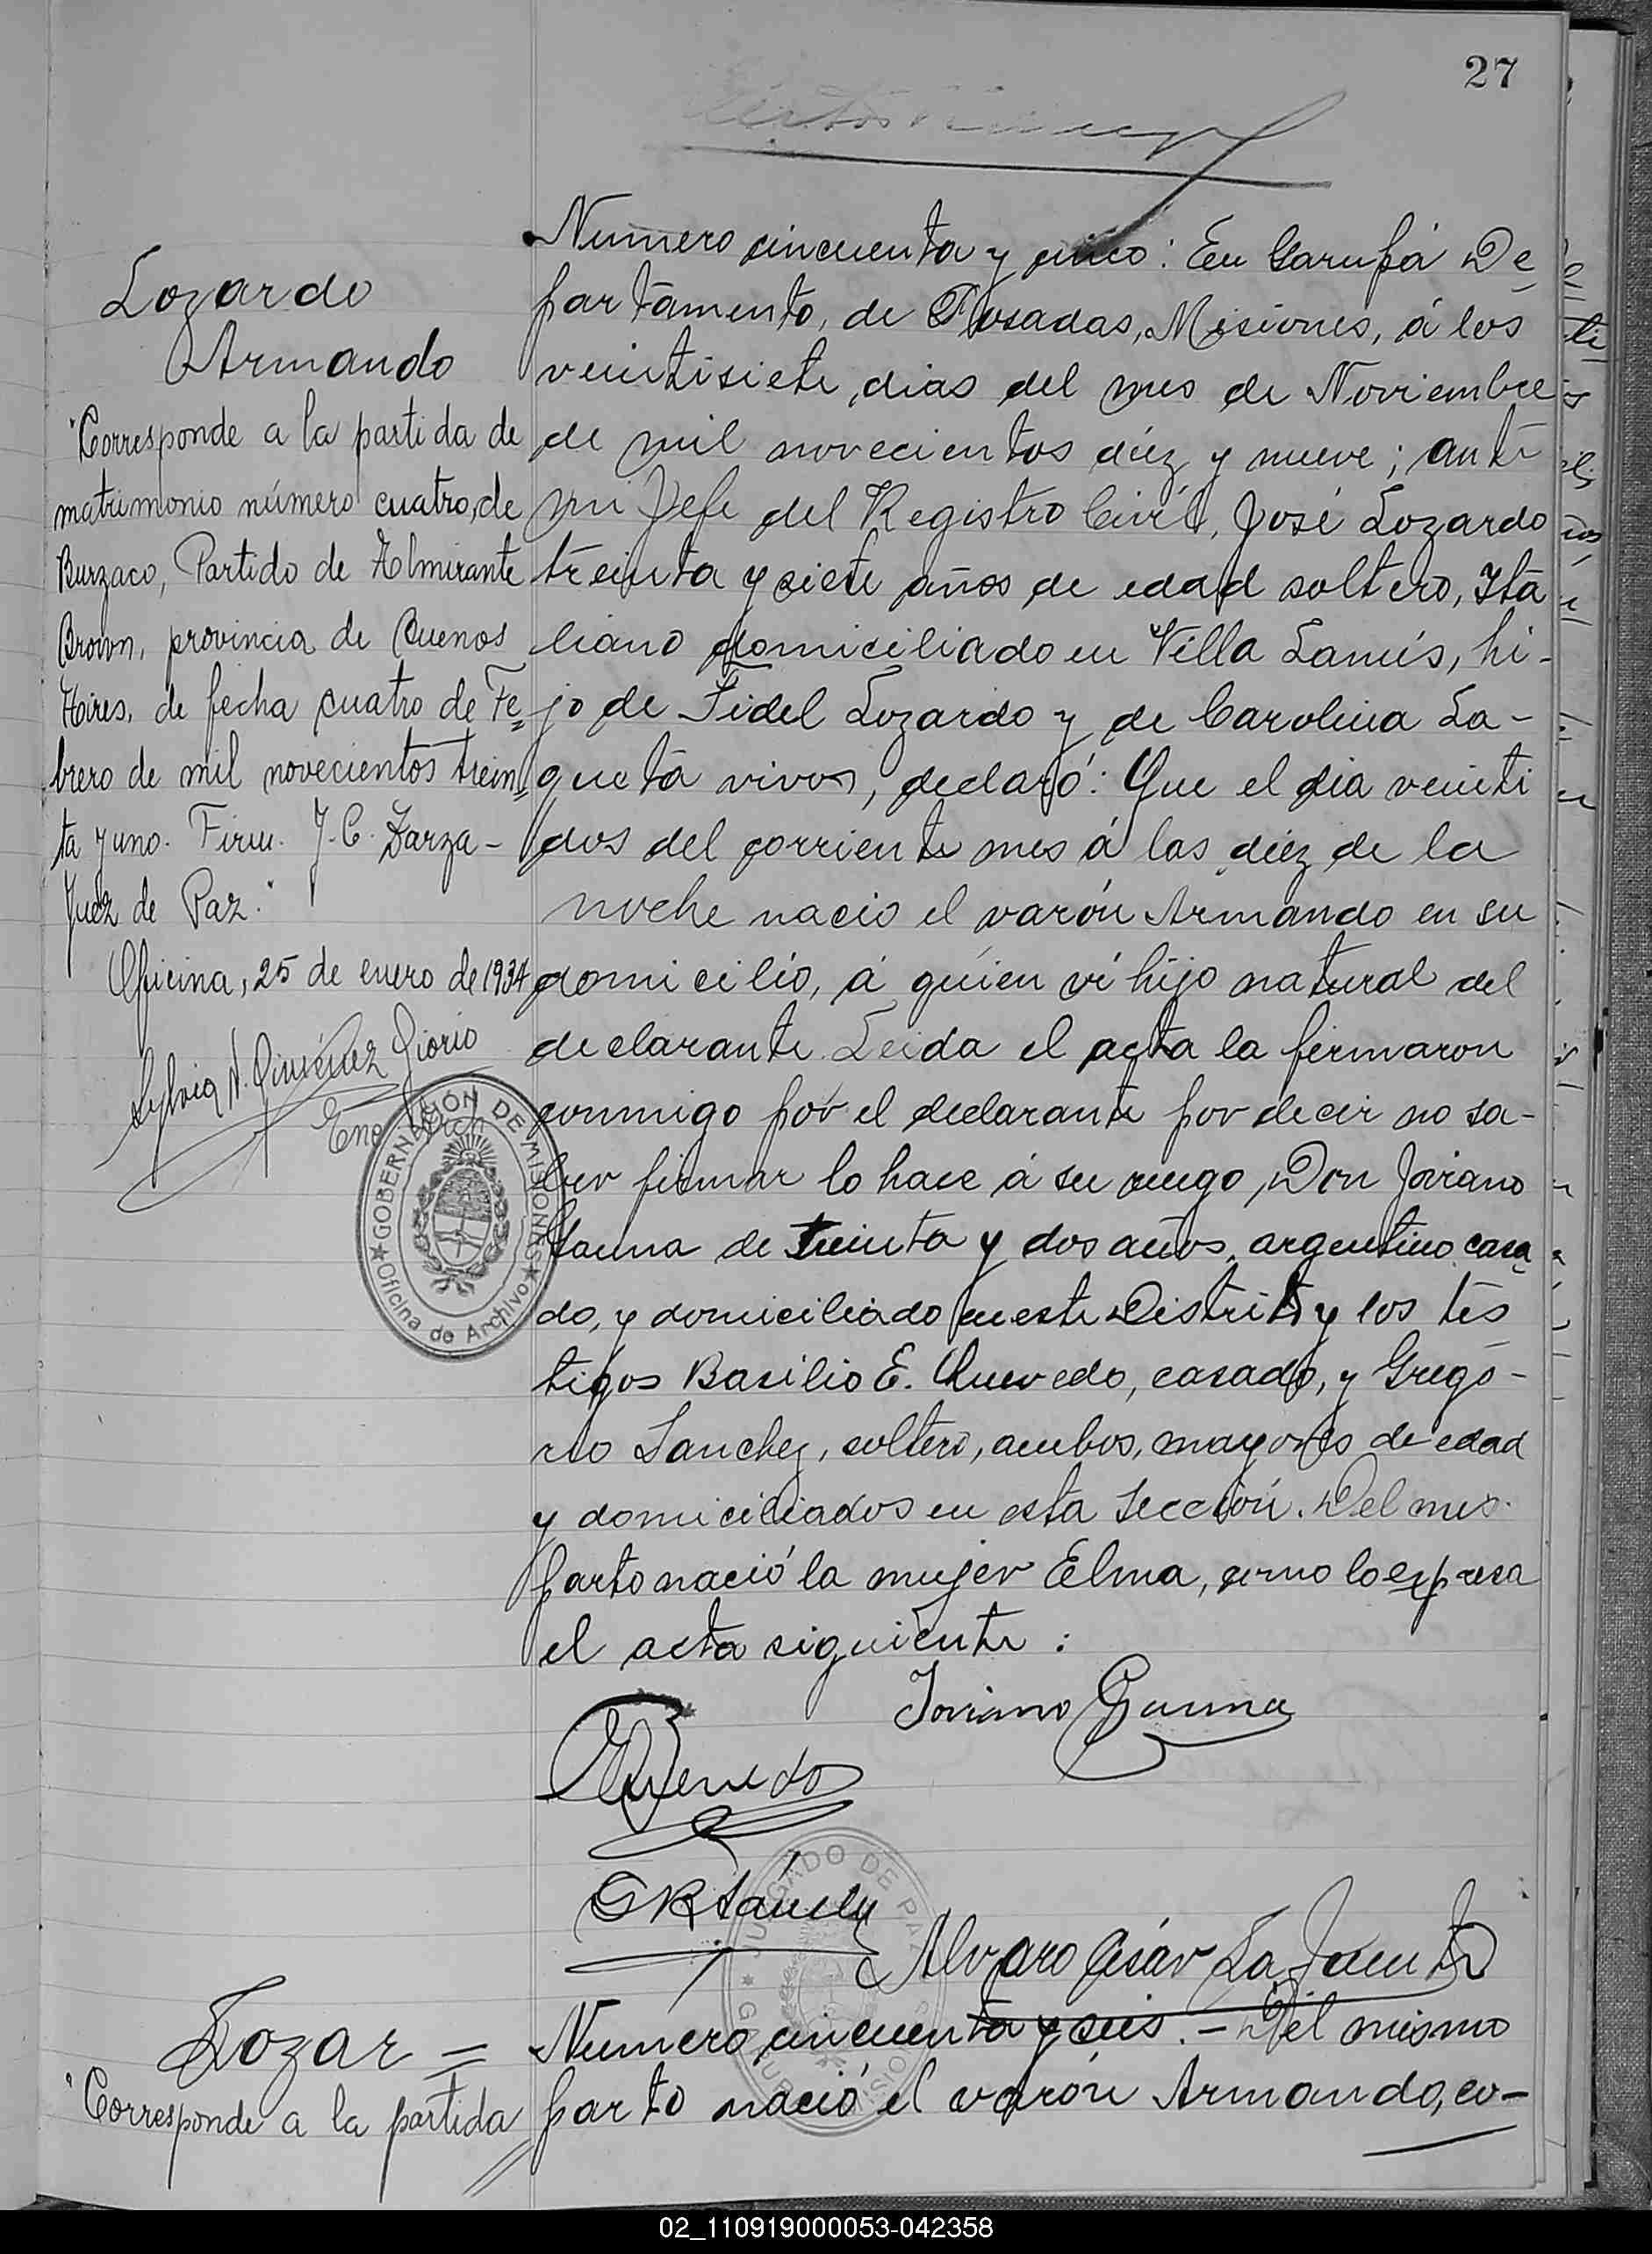 27
Lozardo
Armando
"Corresponde a la partida de
matrimonio número cuatro, de
Burzaco, Partido de Almirante
Brown, provincia de Buenos
Aires, de fecha cuatro de Fe=
brero de mil novecientos trein=
ta y uno. Firm. J. C. Zarza -
Juez de Paz."
Oficina, 25 de enero de 1934
Numero cincuenta y cinco: En Garupá De
partamento, de Posadas, Misiones, á los
veintisiete, dias del mes de Noviembre
de mil novecientos diéz y nueve; ante
mi Jefe del Registro Civil, José Lozardo
treinta y siete años de edad soltero, Ita
liano domiciliado en Villa Lanús, hi-
jo de Fidel Lozardo y de Carolina La-
queta vivos, declaró: Que el dia veinti
dos del corriente mes á las diéz de la
noche nacio el varón Armando en su
domicilio, á quien ví hijo natural del
declarante. Leida el acta la firmaron
conmigo por el declarante por decir no sa-
ber firmar lo hace á su ruego, Don Joviano
de treinta y dos años, argentino casa
do, y domiciliado en este Distrito y los tes
tigos Basilio E. Quevedo, casado, y Grego-
rio Sanchez, soltero, ambos, mayores de edad
y domiciliados en esta Sección. Del mis.
parto nació la mujer Elma, como lo expresa
el acta siguiente:
GOBERNACIÓN DE MISIONES
Oficina de Archivo
Joviano Gauna
Quevedo
JUZGADO DE PAZ
Alvaro César La Fuente
Lozar =
"Corresponde a la partida
Numero cincuenta y seis. - Del mismo
parto nació el varón Armando, co-
02_110919000053-042358